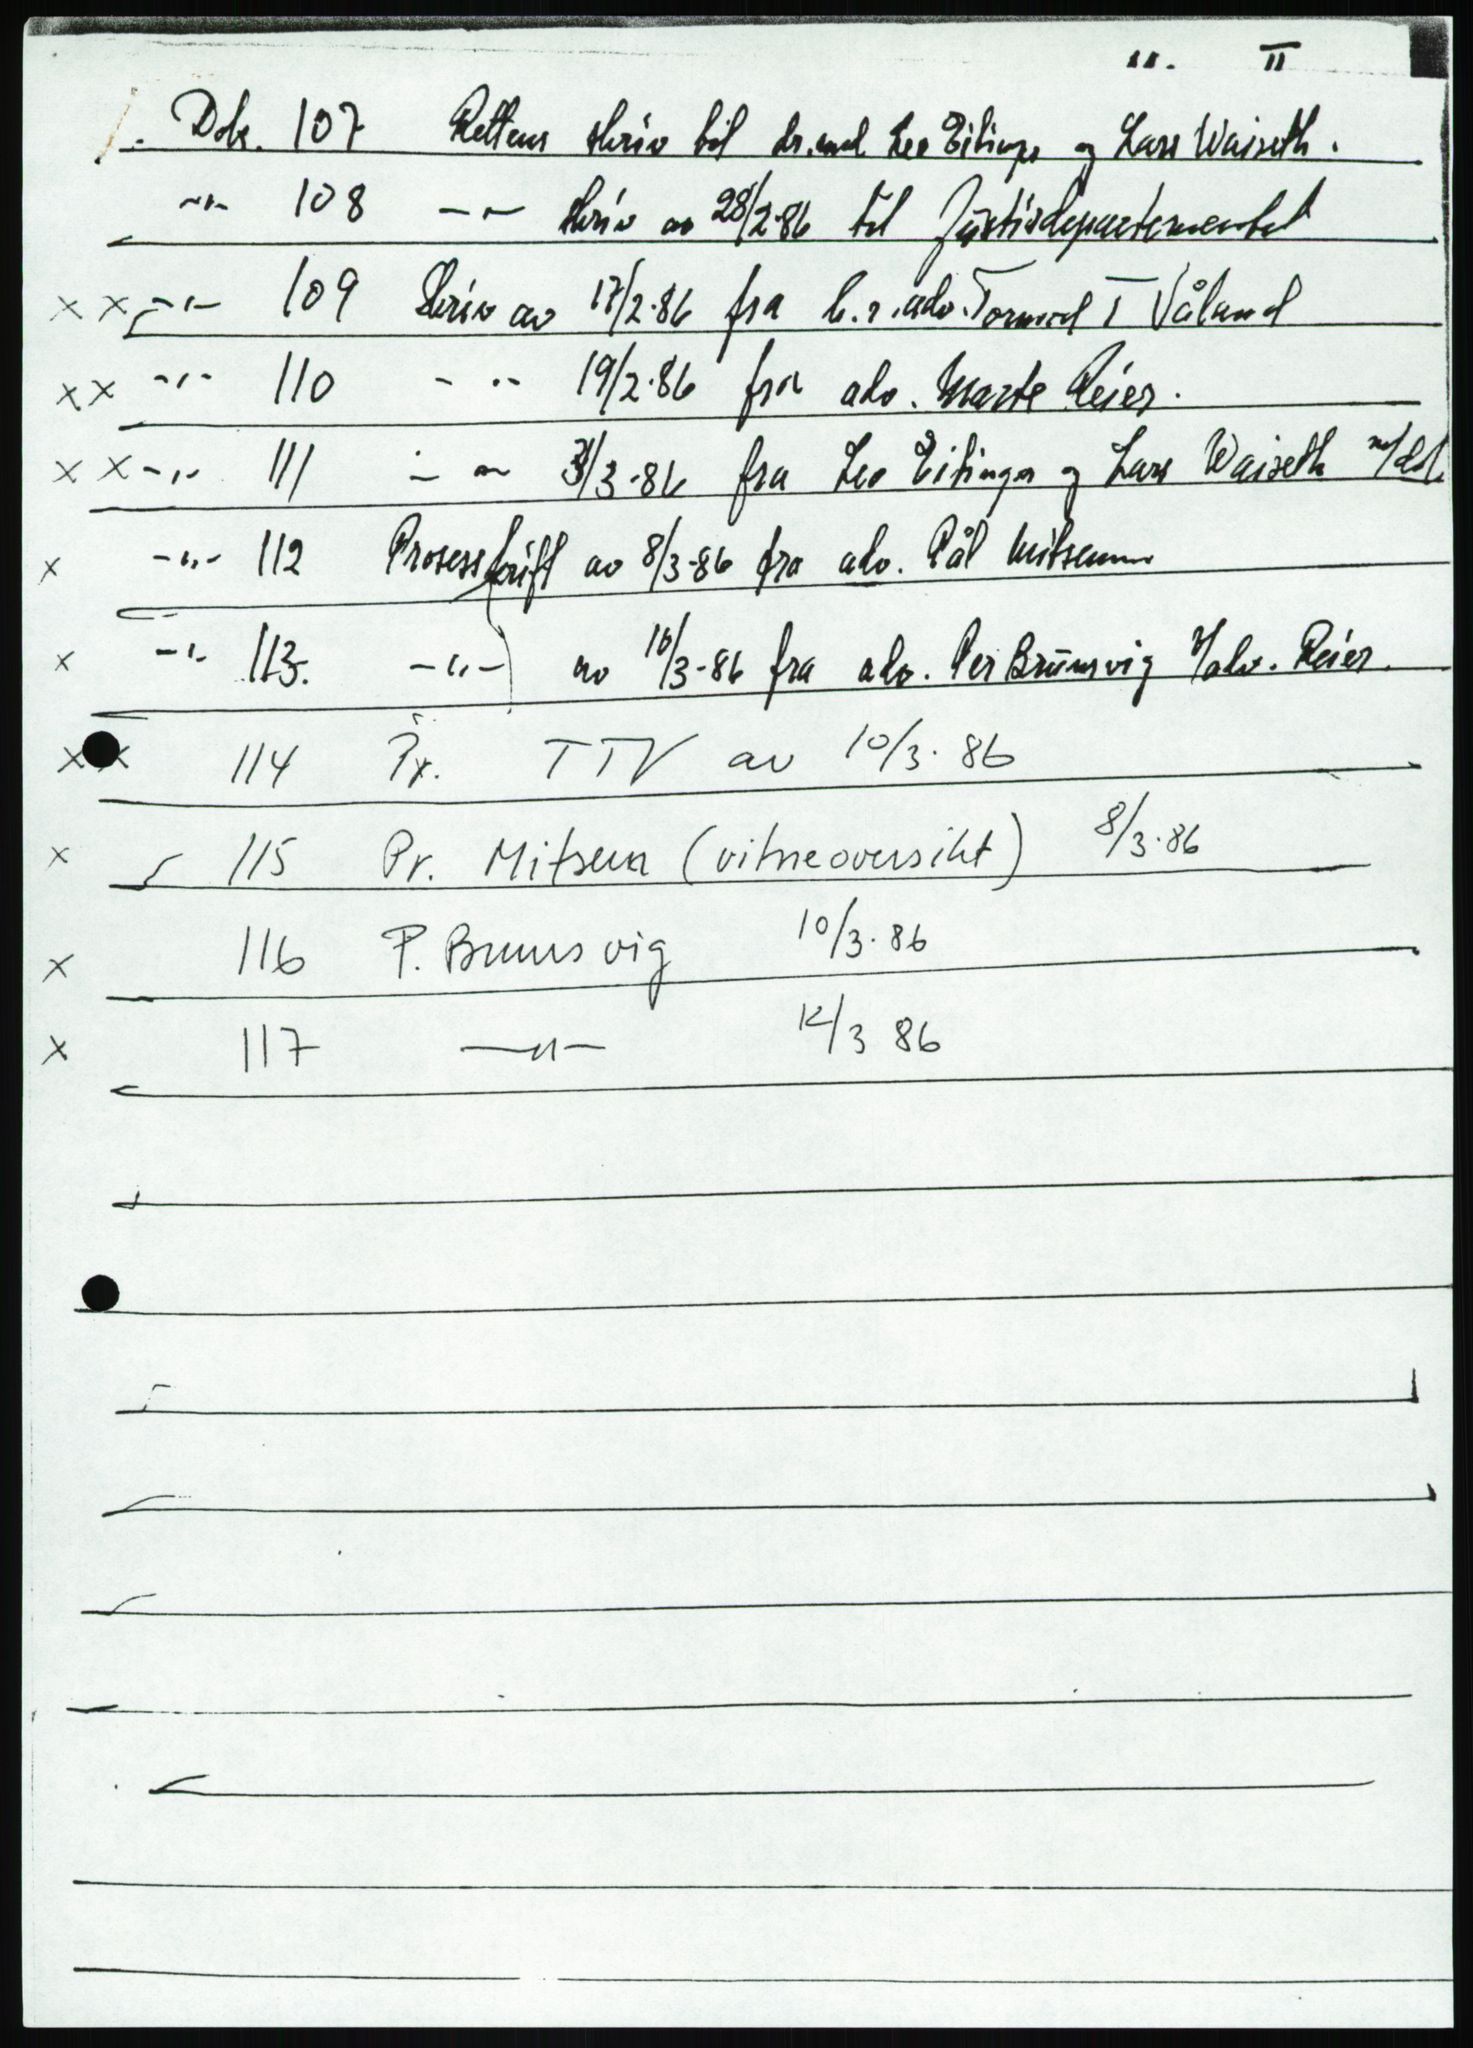 11. II
Dok. 107 Rettens skriv til dr. med. Leo Eitinger og Lars Waiseth.
-"- 108 -"- skriv av 28/2-86 til Justisdepartementet
x x -"- 109 Skriv av 17/2-86 fra h.r.adv. Tormod T Våland
x x -"- 110 -"- 19/2-86 fra adv. Marte Reier.
x x -"- 111 -"- 3/3-86 fra Leo Eitinger og Lars Waiseth
x -"- 112 Prosesskrift av 8/3-86 fra adv. Pål Mitsem
x -"- 113. -"- av 10/3-86 fra adv. Per Brunsvig v/adv. Reier.
x x 114 Pr. TTV av 10/3-86
x 115 Pr. Mitsem (vitneoversikt) 8/3-86
x 116 P. Brunsvig 10/3-86
x 117 -"- 12/3 86